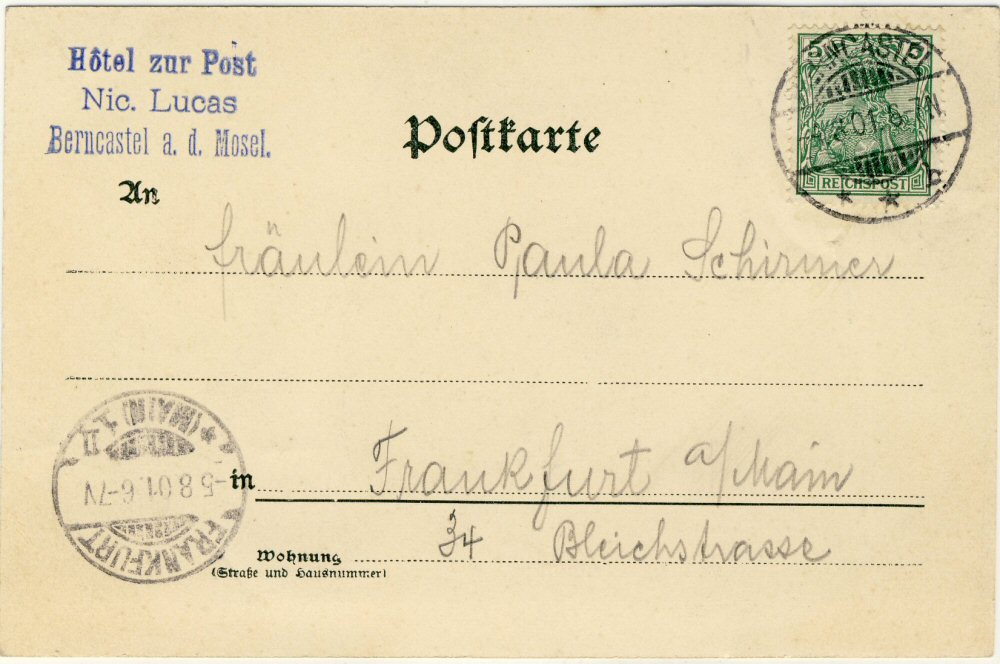 Hôtel zur Post
Nic. Lucas
Berncastel a. d. Mosel.
Postkarte
REICHSPOST
An
Fräulein Paula Schirmer
Frankfurt a/Main
in
34 Bleichstrasse
Wohnung
(Straße und Hausnummer)
FRANKFURT
(MAIN) 1.
-5.8.01.6-7N